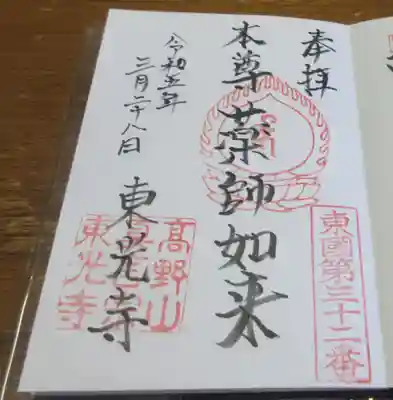 奉拝
東國第三十二番
本尊薬師如来
令和五年
三月二十八日
東光寺
高野山
東光寺